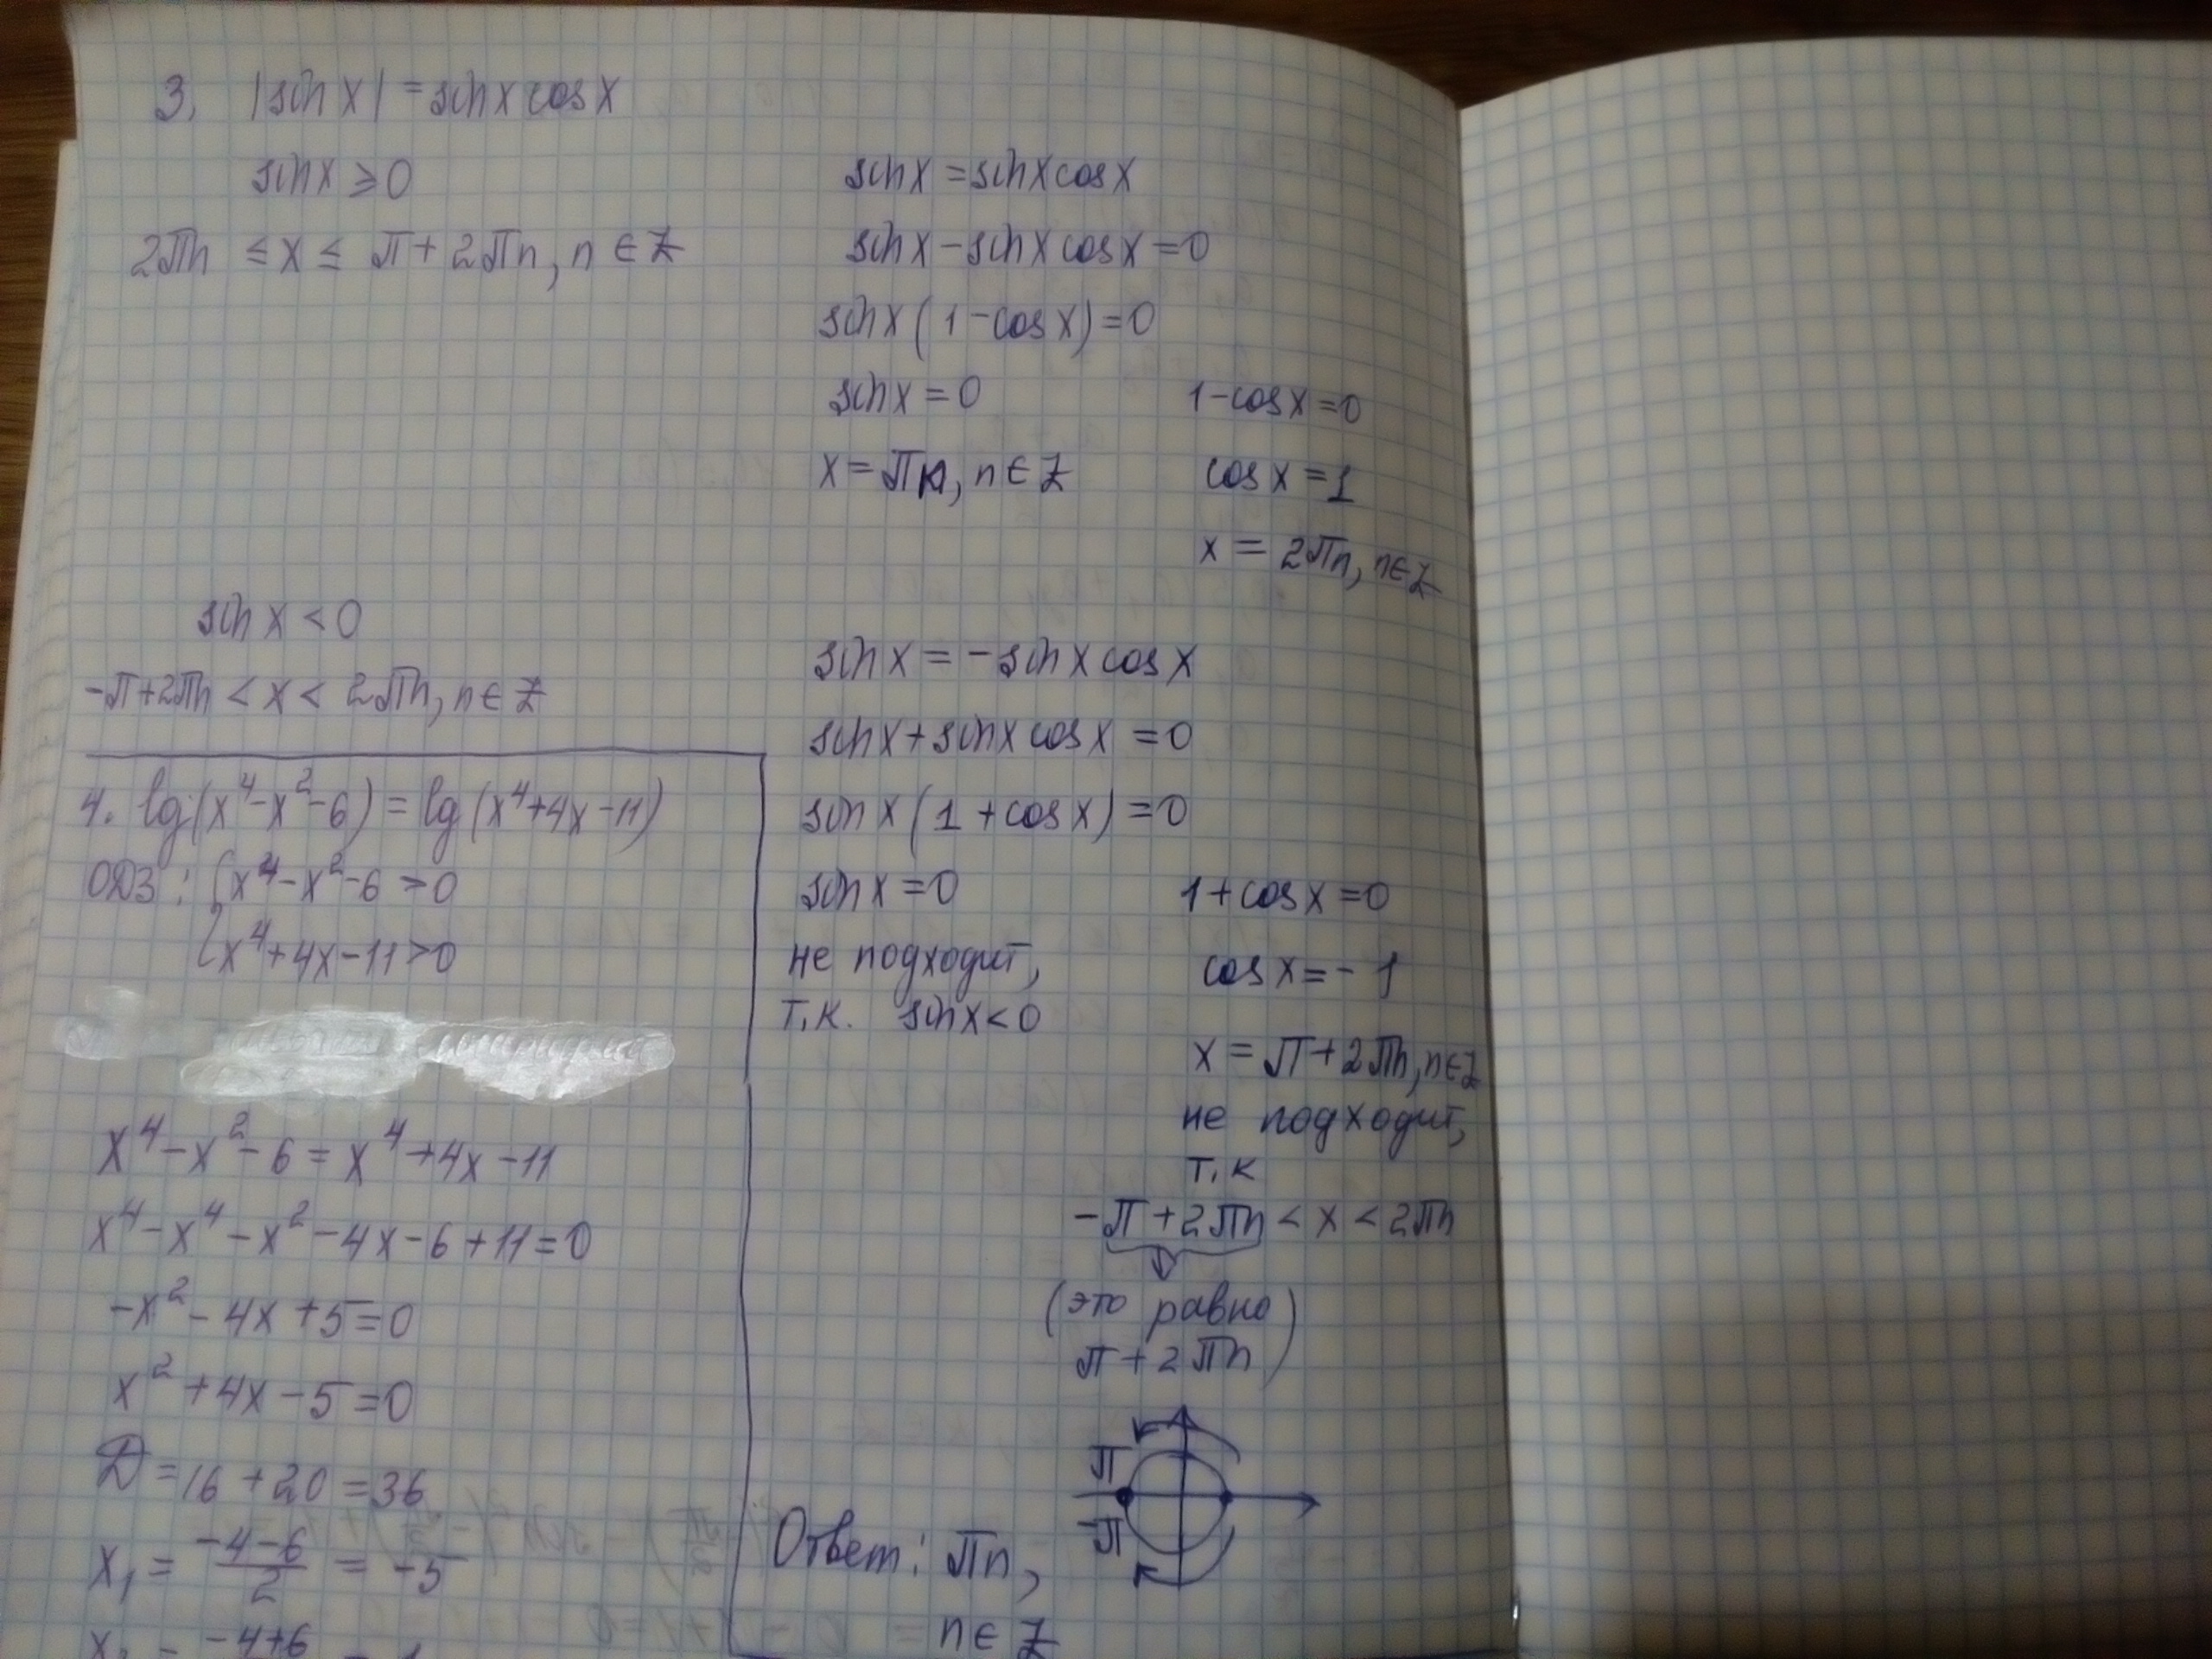 3. |sin x| = sin x cos x
sin x ≥ 0
2πn ≤ x ≤ π + 2πn, n ∈ Z
sin x = sin x cos x
sin x - sin x cos x = 0
sin x (1 - cos x) = 0
sin x = 0 1 - cos x = 0
x = πn, n ∈ Z cos x = 1
x = 2πn, n ∈ Z
sin x < 0
-π + 2πn < x < 2πn, n ∈ Z
sin x = - sin x cos x
sin x + sin x cos x = 0
sin x (1 + cos x) = 0
sin x = 0 1 + cos x = 0
не подходит, cos x = - 1
т.к. sin x < 0
x = π + 2πn, n ∈ Z
не подходит,
т.к
-π + 2πn < x < 2πn
(это равно
π + 2πn)
π
-π
Ответ: πn,
n ∈ Z
4. lg(x⁴ - x² - 6) = lg(x⁴ + 4x - 11)
ОДЗ: { x⁴ - x² - 6 > 0
x⁴ + 4x - 11 > 0
x⁴ - x² - 6 = x⁴ + 4x - 11
x⁴ - x⁴ - x² - 4x - 6 + 11 = 0
-x² - 4x + 5 = 0
x² + 4x - 5 = 0
D = 16 + 20 = 36
x₁ = (-4 - 6)/2 = -5
-4+6